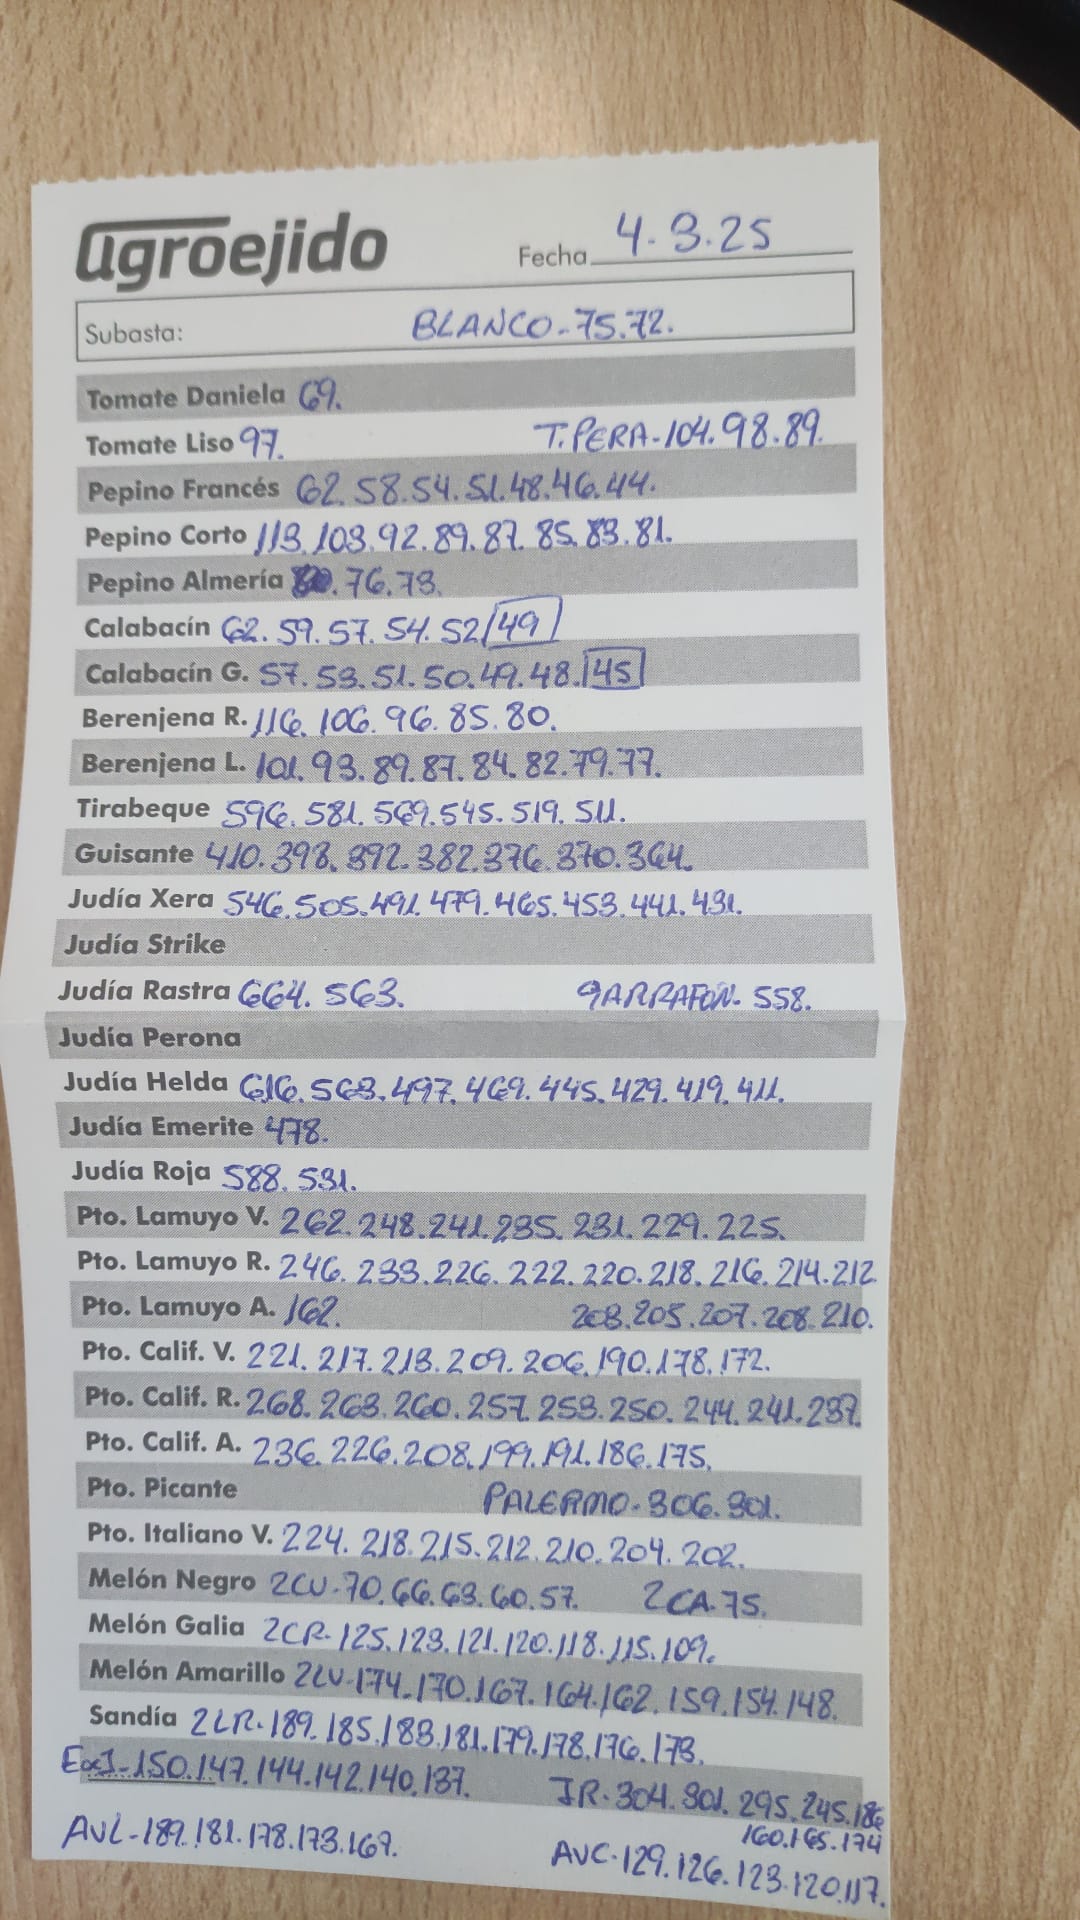 agroejido
Fecha 4.3.25
Subasta: BLANCO-75.72.
Tomate Daniela 69.
Tomate Liso 97. T.PERA-104.98.89.
Pepino Francés 62.58.54.51.48.46.44.
Pepino Corto 113.103.92.89.87.85.83.81.
Pepino Almería 80.76.73.
Calabacín 62.59.57.54.52/49
Calabacín G. 57.53.51.50.49.48./45
Berenjena R. 116.106.96.85.80.
Berenjena L. 101.93.89.87.84.82.79.77.
Tirabeque 596.581.569.545.519.511.
Guisante 410.398.392.382.376.370.364.
Judía Xera 546.505.491.479.465.453.441.431.
Judía Strike
Judía Rastra 664.563. GARRAFON-558.
Judía Perona
Judía Helda 616.563.497.469.445.429.419.411.
Judía Emerite 478.
Judía Roja 588.531.
Pto. Lamuyo V. 262.248.241.235.231.229.225.
Pto. Lamuyo R. 246.233.226.222.220.218.216.214.212
Pto. Lamuyo A. 162. 203.205.207.208.210.
Pto. Calif. V. 221.217.213.209.206.190.178.172.
Pto. Calif. R. 268.263.260.257.253.250.244.241.237.
Pto. Calif. A. 236.226.208.199.191.186.175.
Pto. Picante PALERMO-306.301.
Pto. Italiano V. 224.218.215.212.210.204.202.
Melón Negro 2CU-70.66.63.60.57. 2CA-75.
Melón Galia 2CR-125.123.121.120.118.115.109.
Melón Amarillo 2LV-174.170.167.164.162.159.154.148.
Sandía 2LR-189.185.183.181.179.178.176.173.
-150.147.144.142.140.137. JR-304.301.295.245.186
160.165.174
AVL-189.181.178.173.167.
AVC-129.126.123.120.117.